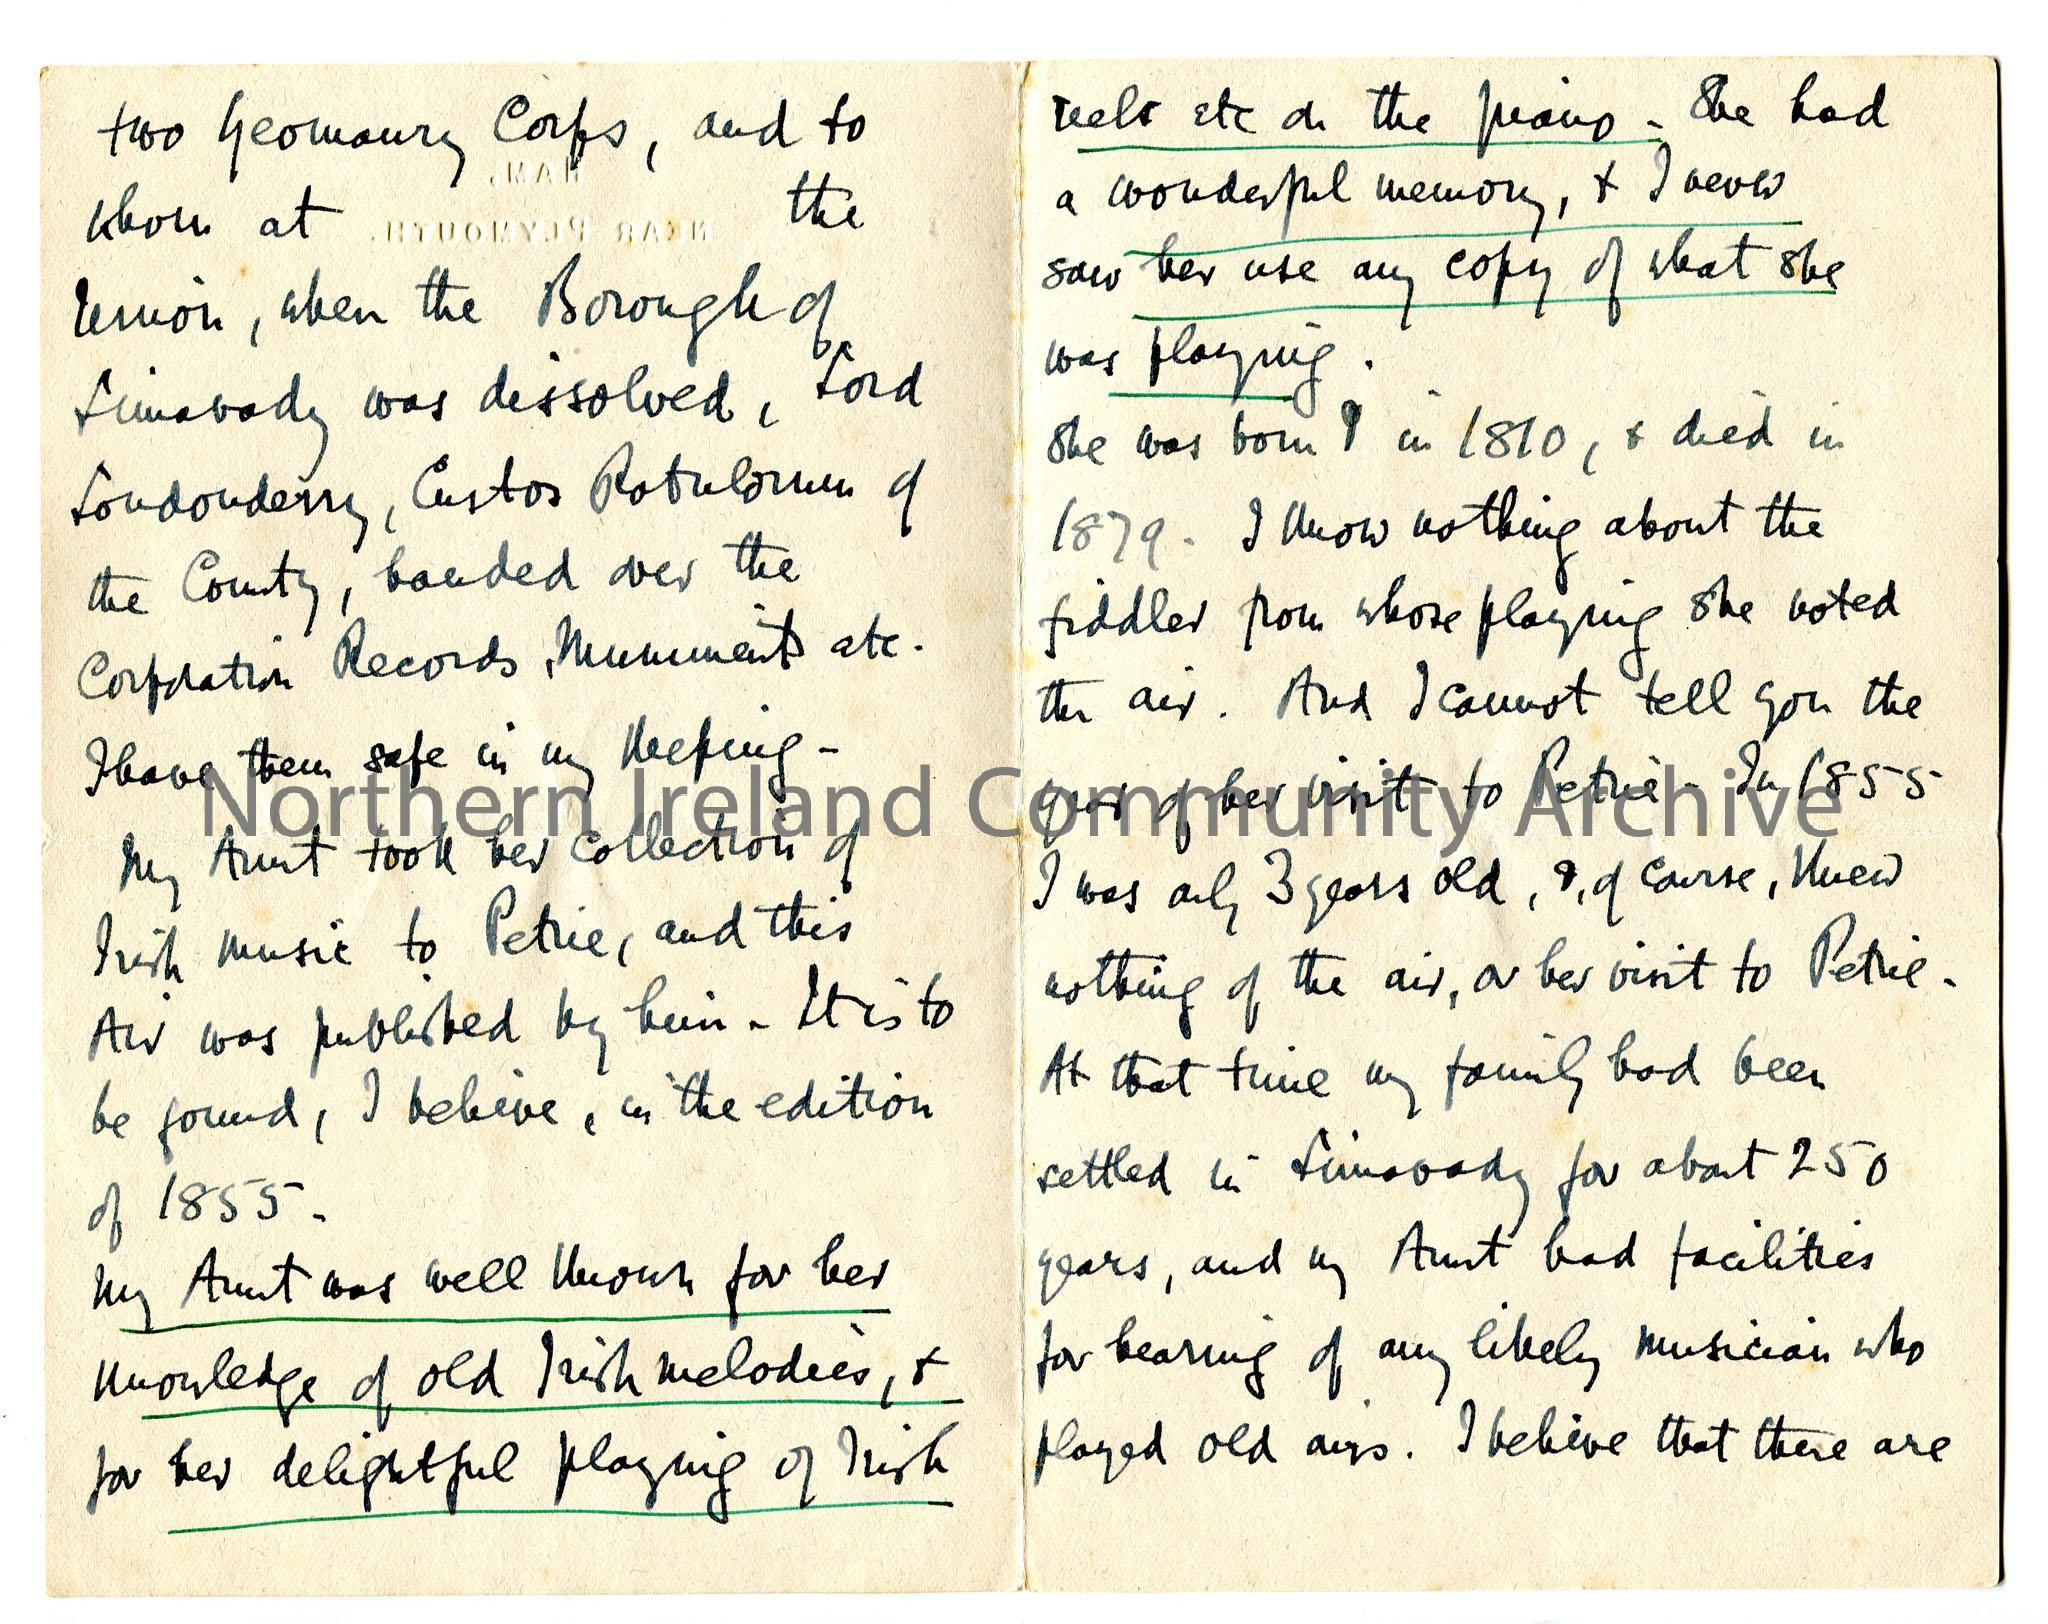 two Yeomanry Corps, and to
HAM,
whom at the
NEAR PLYMOUTH.
Union, when the Borough of
Limavady was dissolved, Lord
Londonderry, Custos Rotulorum of
the County, handed over the
Corporation Records, Muniments etc.
I have them safe in my keeping -
My Aunt took her collection of
Irish music to Petrie, and this
Air was published by him - It is to
be found, I believe, in the edition
of 1855 -
My Aunt was well known for her
knowledge of old Irish melodies, &
for her delightful playing of Irish
reels etc on the piano - She had
a wonderful memory, & I never
saw her use any copy of what she
was playing.
She was born ? in 1810, & died in
1879 - I know nothing about the
fiddler from whose playing she noted
the air. And I cannot tell you the
year of her visit to Petrie - In 1855
I was only 3 years old, &, of course, knew
nothing of the air, or her visit to Petrie -
At that time my family had been
settled in Limavady for about 250
years, and my Aunt had facilities
for hearing of any likely musician who
played old airs. I believe that there are
Northern Ireland Community Archive